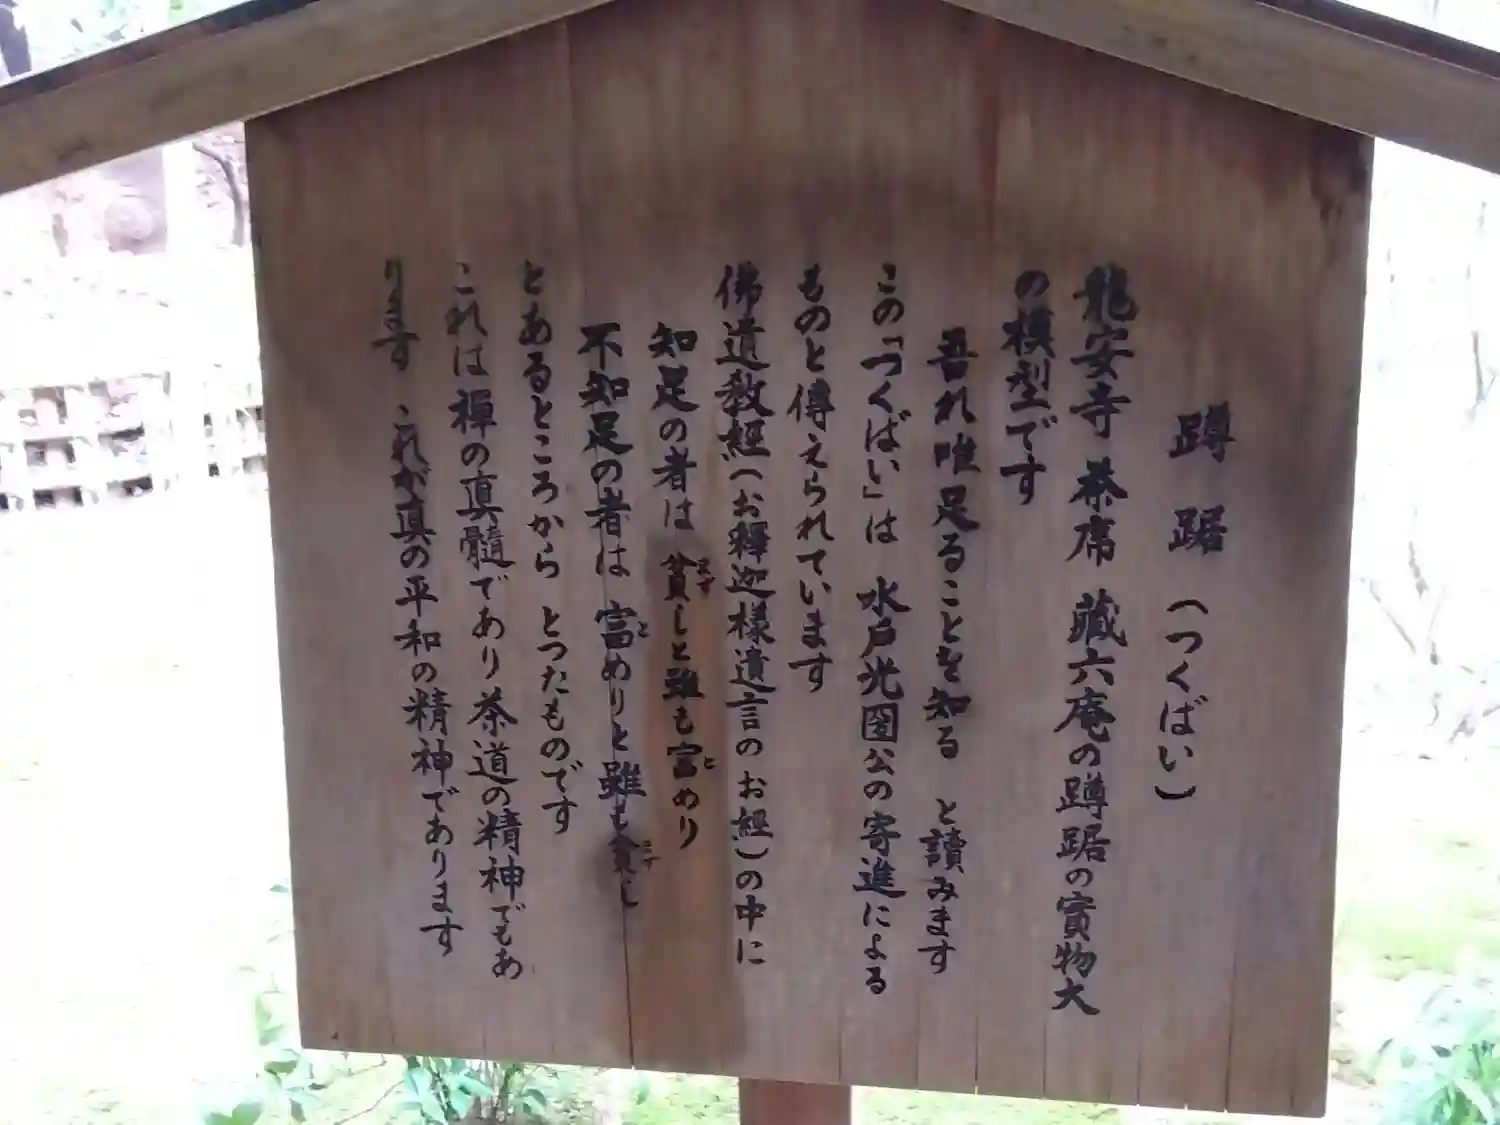 蹲踞(つくばい)
龍安寺 茶席 藏六庵の蹲踞の實物大
の模型です
吾れ唯足ることを知る と讀みます
この「つくばい」は 水戸光圀公の寄進による
ものと傳えられています
佛遺敎經(お釋迦樣遺言のお經)の中に
知足の者は貧しと雖も富めり
まず
と
不知足の者は 富めりと雖も貧し
と
まず
とあるところから とつたものです
これは禪の真髓であり茶道の精神でもあ
ります これが真の平和の精神であります